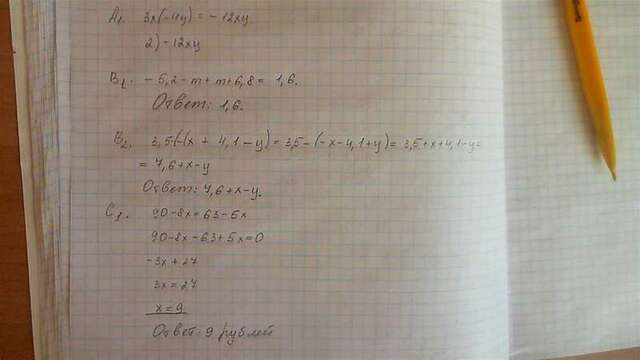 А1. 3x(-4y) = -12xy
2) -12xy
В1. -5,2-m+m+6,8 = 1,6.
Ответ: 1,6.
В2. 3,5-(-(x + 4,1-y) = 3,5-(-x-4,1+y) = 3,5+x+4,1-y=
= 7,6+x-y
Ответ: 7,6+x-y.
С1. 90-8x=63-5x
90-8x-63+5x=0
-3x+27
3x=27
x=9
Ответ: 9 рублей